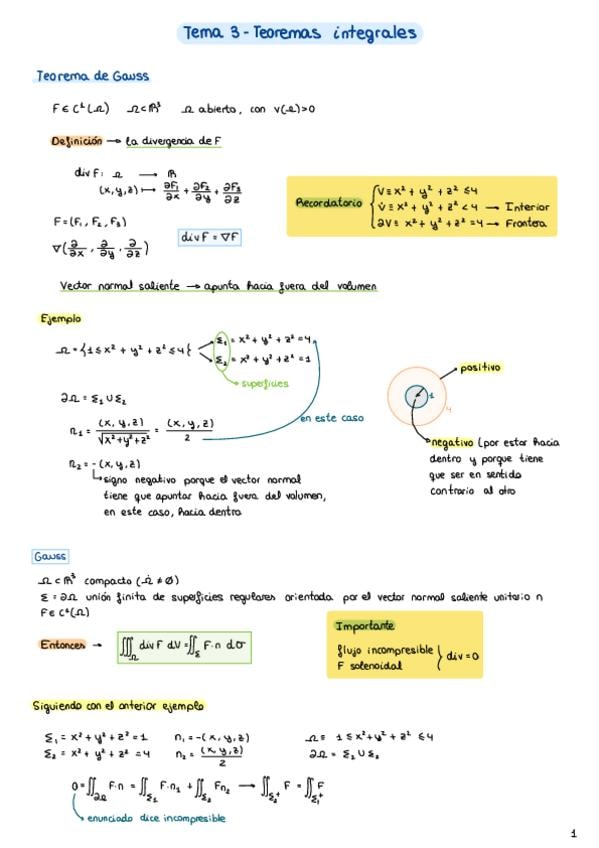 Tema 3 - Teoremas integrales
Teorema de Gauss
F ∈ C¹(Ω) Ω ⊂ ℝ³ Ω abierto, con v(Ω) > 0
Definición → la divergencia de F
div F: Ω → ℝ
(x, y, z) ↦ ∂F₁/∂x + ∂F₂/∂y + ∂F₃/∂z
F = (F₁, F₂, F₃)
∇(∂/∂x, ∂/∂y, ∂/∂z)
div F = ∇F
Recordatorio
V ≡ x² + y² + z² ≤ 4
V̇ ≡ x² + y² + z² < 4 → Interior
∂V ≡ x² + y² + z² = 4 → Frontera
Vector normal saliente → apunta hacia fuera del volumen
Ejemplo
Ω = {1 ≤ x² + y² + z² ≤ 4}
Σ₁ = x² + y² + z² = 4
Σ₂ = x² + y² + z² = 1
superficies
∂Ω = Σ₁ ∪ Σ₂
n₁ = (x, y, z)/√x²+y²+z² = (x, y, z)/2
en este caso
n₂ = -(x, y, z)
signo negativo porque el vector normal
tiene que apuntar hacia fuera del volumen,
en este caso, hacia dentro
positivo
1
4
negativo (por estar hacia
dentro y porque tiene
que ser en sentido
contrario al otro
Gauss
Ω ⊂ ℝ³ compacto (Ω̇ ≠ Ø)
Σ = ∂Ω unión finita de superficies regulares orientada por el vector normal saliente unitario n
F ∈ C¹(Ω)
Entonces → ∭_Ω div F dV = ∬_Σ F·n dσ
Importante
flujo incompresible
F solenoidal
div = 0
Siguiendo con el anterior ejemplo
Σ₁ = x² + y² + z² = 1 n₁ = -(x, y, z) Ω ≡ 1 ≤ x² + y² + z² ≤ 4
Σ₂ = x² + y² + z² = 4 n₂ = (x, y, z)/2 ∂Ω = Σ₁ ∪ Σ₂
0 = ∬_∂Ω F·n = ∬_Σ₁ F·n₁ + ∬_Σ₂ Fn₂ → ∬_Σ₂⁺ F = ∬_Σ₁⁺ F
enunciado dice incompresible
1